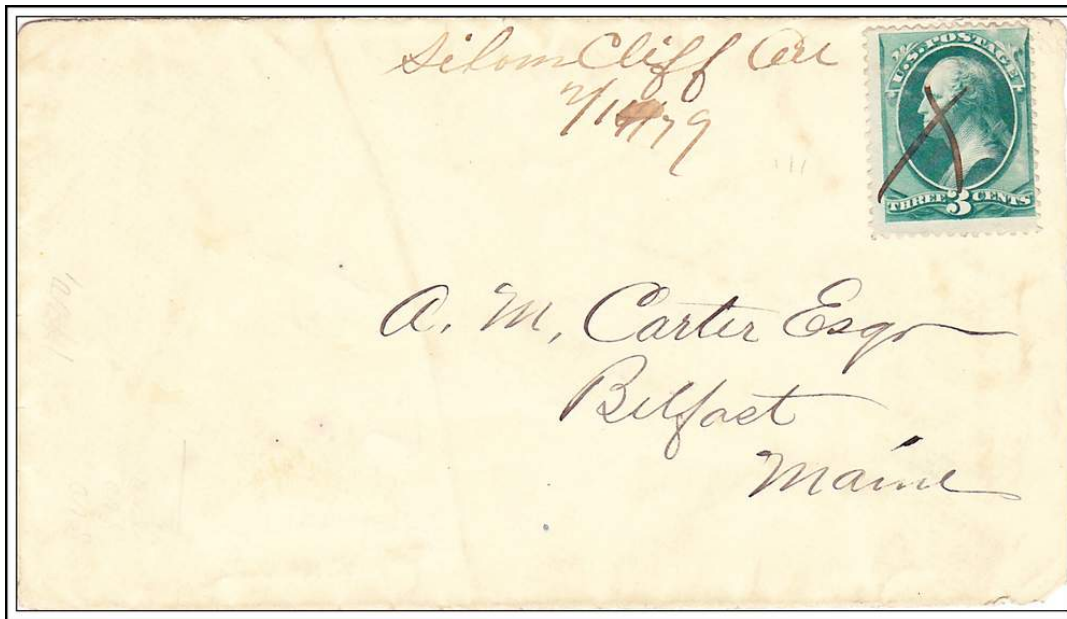 Silver Cliff Col
U.S. POSTAGE
THREE 3 CENTS
A. M. Carter Esqr
Belfast
Maine